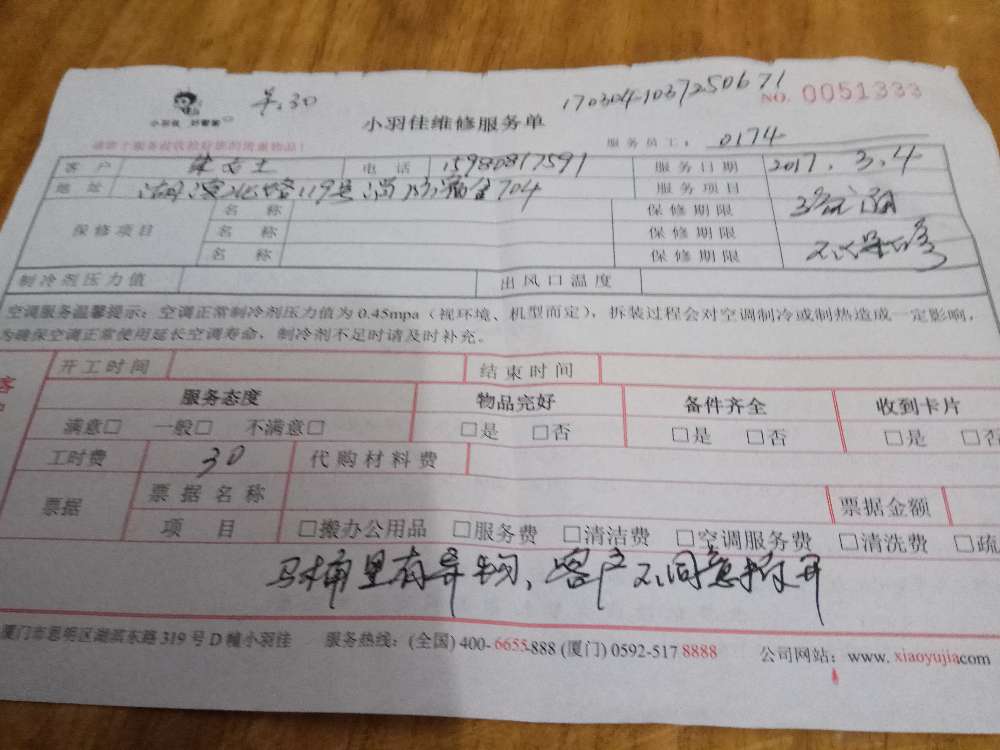 170304-1037250671
NO. 0051333
小羽佳 好管家
小羽佳维修服务单
服务员工: 0174
客户 电话 15980817591 服务日期 2017.3.4
地址 湖滨北路119号 704 服务项目
保修项目 名称 保修期限
名称 保修期限
名称 保修期限 不保修
制冷剂压力值 出风口温度
空调服务温馨提示：空调正常制冷剂压力值为0.45mpa（视环境、机型而定），拆装过程会对空调制冷或制热造成一定影响，
为确保空调正常使用延长空调寿命，制冷剂不足时请及时补充。
开工时间 结束时间
服务态度 物品完好 备件齐全 收到卡片
满意□ 一般□ 不满意□ □是 □否 □是 □否 □是 □否
工时费 30 代购材料费
票据 票据名称 票据金额
项目 □搬办公用品 □服务费 □清洁费 □空调服务费 □清洗费 □疏
马桶里有异物，客户不同意拆开
厦门市思明区湖滨东路319号D幢小羽佳 服务热线：(全国) 400-6655-888 (厦门) 0592-517 8888 公司网站：www. xiaoyujiacom